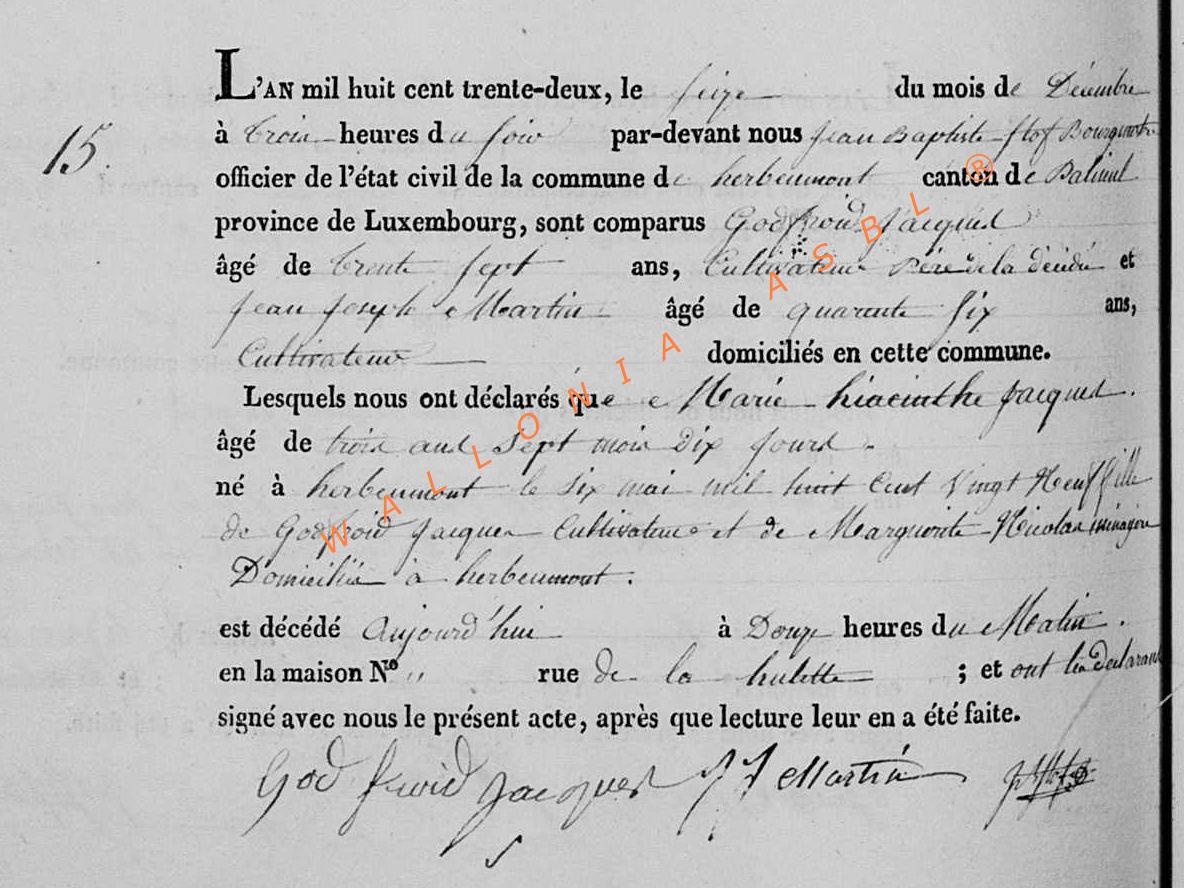 L'AN mil huit cent trente-deux, le seize du mois de Décembre
15. à trois heures du soir par-devant nous jean Baptiste Bourguemtre
officier de l'état civil de la commune de herbeumont canton de Paliseul
province de Luxembourg, sont comparus Godfroid Jacques
âgé de trente sept ans, Cultivateur Père de la décédée et
jean joseph Martin âgé de quarente six ans,
Cultivateur domiciliés en cette commune.
Lesquels nous ont déclarés que Marie hiacinthe jacques.
âgé de trois ans sept mois dix jours
né à herbeumont le six mai mil huit Cent Vingt Neuf fille
de Godfroid jacques Cultivateur et de Marguerite Nicolas ménagère
Domiciliés à herbeumont.
est décédé Aujourd'hui à Douze heures du Matin.
en la maison N° " rue de la hulette ; et ont les déclarans
signé avec nous le présent acte, après que lecture leur en a été faite.
God froid jacques J J Martin
WALLONIA ASBL ®